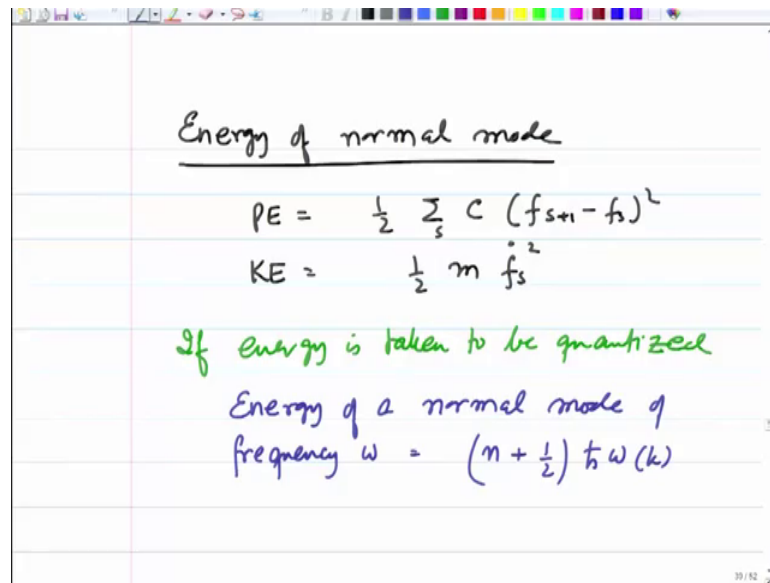 Energy of normal mode
PE = 1/2 Σ_s C (f_{s+1} - f_s)^2
KE = 1/2 m ḟ_s^2
If energy is taken to be quantized
Energy of a normal mode of
frequency ω = (n + 1/2) ħ ω(k)